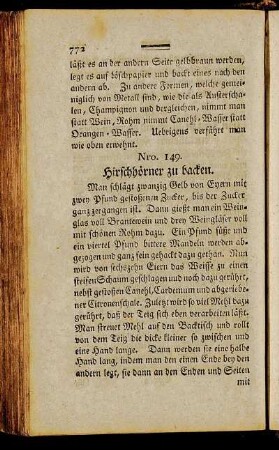 772
läßt es an der andern Seite gelbbraun werden,
legt es auf löschpapier und backt eines nach den
andern ab. Zu andere Formen, welche gemei-
niglich von Metall sind, wie die als Austerscha-
len, Champignon und dergleichen, nimmt man
statt Wein, Rohm nimmt Canehl-Wasser statt
Orangen-Wasser. Uebrigens verfährt man
wie oben erwehnt.
Nro. 149.
Hirschhörner zu backen.
Man schlägt zwanzig Gelb von Eyern mit
zwey Pfund gestoßenem Zucker, bis der Zucker
ganz zergangen ist. Dann gießt man ein Wein-
glas voll Brantewein und drey Weingläser voll
mit schönen Rohm dazu. Ein Pfund süße und
ein viertel Pfund bittere Mandeln werden ab-
gezogen und ganz fein gehackt dazu gethan. Nun
wird von sechszehn Eiern das Weisse zu einen
steifen Schaum geschlagen und noch dazu gerührt,
nebst gestoßen Canehl, Cardemum und abgeriebe-
ner Citronenschale. Zuletzt wird so viel Mehl dazu
gerührt, daß der Teig sich eben verarbeiten läßt.
Man streuet Mehl auf den Backtisch und rollt
von dem Teig die dicke kleiner so zwischen und
eine Hand lange. Dann werden sie eine halbe
Hand lang, indem man den einen Ende bey den
andern legt, sie dann an den Enden und Seiten
mit